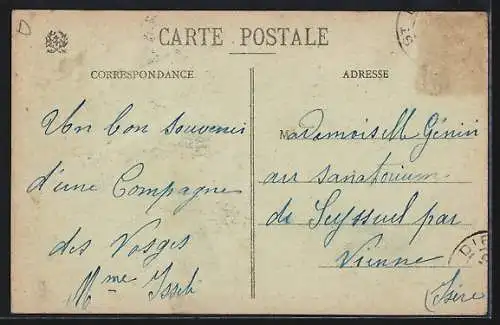 D
CARTE POSTALE
CORRESPONDANCE
ADRESSE
Un bon souvenir
d'une Compagne
des Vosges
Mme
Mademois M Génin
au sanatorium
de Seyssuel par
Vienne
(Isère